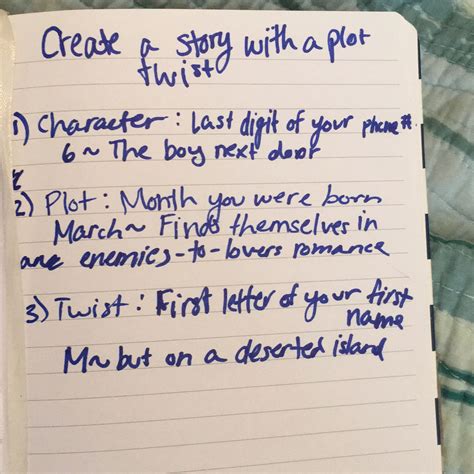 Create a story with a plot
twist
1) Character : Last digit of your phone #
6 ~ The boy next door
2) Plot : Month you were born
March ~ Finds themselves in
an enemies-to-lovers romance
3) Twist : First letter of your first
name
M ~ but on a deserted island